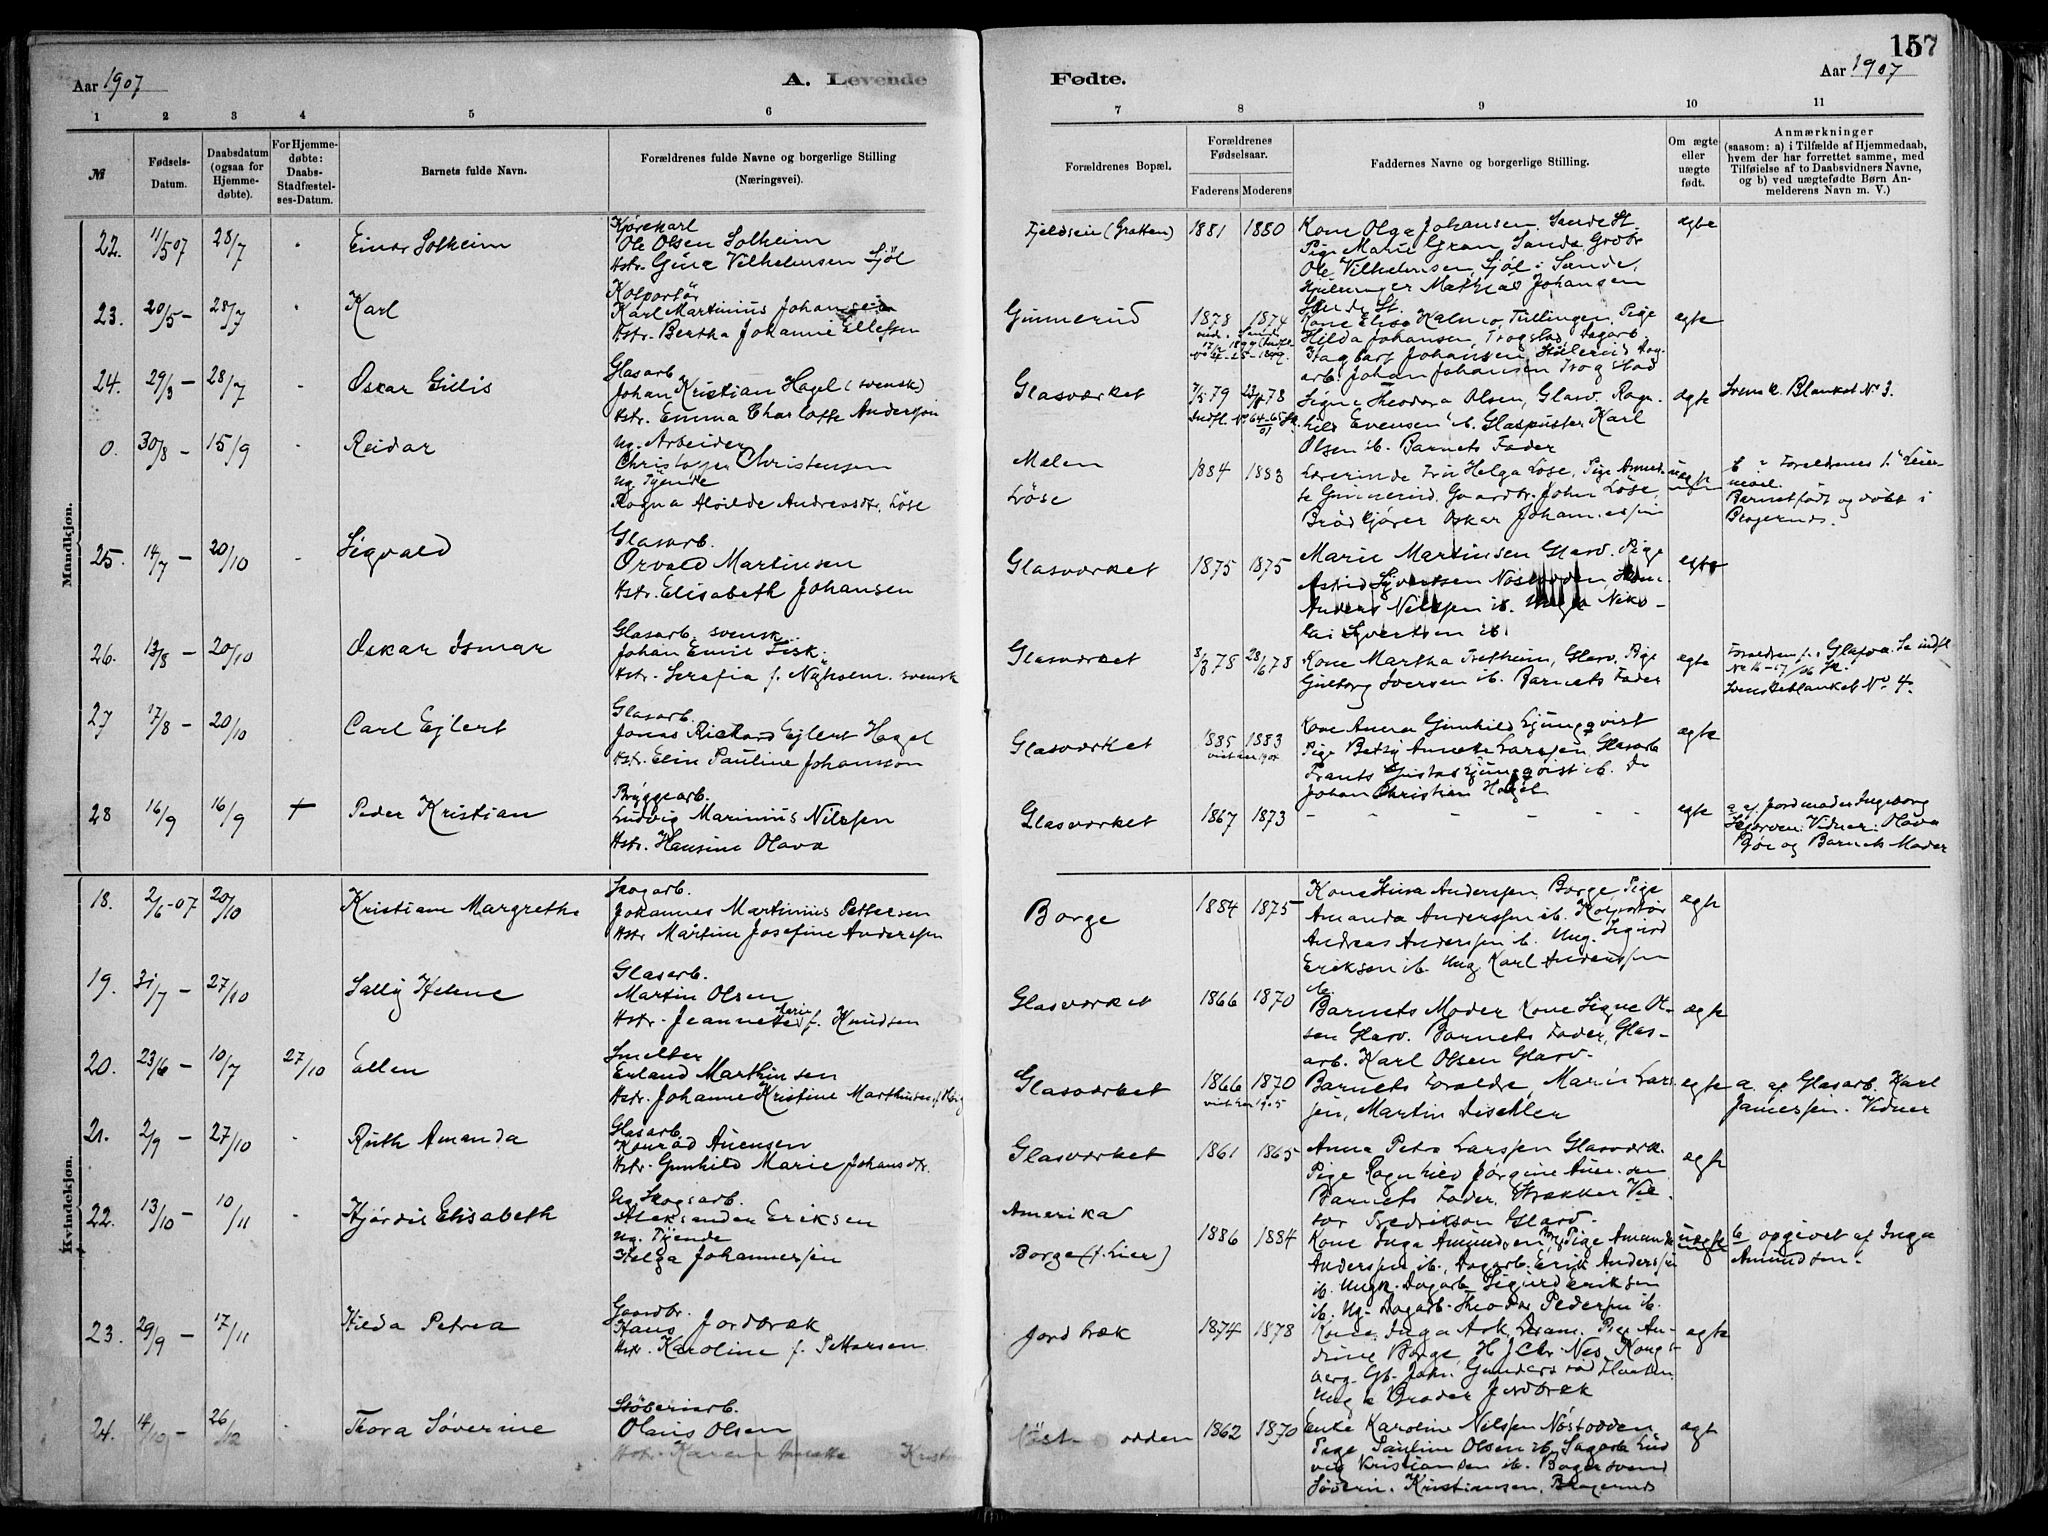 157
Aar 1907
A. Levende
Fødte.
Aar 1907
1 2 3 4 5 6 7 8 9 10 11
№
Fødsels-
Datum.
Daabsdatum
(ogsaa for
Hjemme-
døbte).
For Hjemme-
døbte:
Daabs-
Stadfæstel-
ses-Datum.
Barnets fulde Navn.
Forældrenes fulde Navne og borgerlige Stilling
(Næringsvei).
Forældrenes Bopæl.
Forældrenes
Fødselsaar.
Faderens Moderens
Faddernes Navne og borgerlige Stilling.
Om ægte
eller
uægte
født.
Anmærkninger
(saasom: a) i Tilfælde af Hjemmedaab,
hvem der har forrettet samme, med
Tilføielse af to Daabsvidners Navne,
og b) ved uægtefødte Børn An-
melderens Navn m. V.)
Mandkjøn.
22. 11/5 07 28/7 Einar Solheim
Kjørekarl
Ole Olsen Solheim
Hstr. Gina Vilhelmsen Sjöl
Fjeldsein (Gratten) 1881 1880
Kone Olga Johansen, Sande St.
Pige Marie Gran, Sande, Grdbr
Ole Vilhelmsen, Sjöl i Sande,
Mathias Johansen
Sande St.
egte
23. 20/5 – 28/7 Karl
Kolportör
Karl Martinius Johansen
Hstr. Bertha Johanne Ellefsen
Gunnerud 1878 1874
Kone Elise Kalmo, Tullingen, Pige
Hilda Johansen, Trogstad, Dagarb
Dagbart Johansen, Dag-
arb. Johan Johansen Trogstad
egte
24. 29/3 – 28/7 Oskar Gillis
Glasarb.
Johan Kristian Hagel (svensk)
Hstr. Emma Charlotte Andersson
Glasværket 7/5 79 78
Indfl. No 64-65
Signe Theodora Olsen, Glasv. Ragn-
hild Evensen ib. Glaspuster Karl
Olsen ib. Barnets Fader
egte
Svensk Blanket No 3.
0. 30/8 – 15/9 Reidar
Ug. Arbeider
Christoffer Christensen
Ug. Tjende
Ragna Alvilde Andreasdtr. Löse
Mælen
Löse
1884 1883
Lærerinde Fru Helga Löse, Pige
Gunnerud, Gaardbr. John Löse,
Brödkjører Oskar Johannessen
uegte
b Forældrenes 1.
Barnet født og døbt i
Bragernes.
25. 14/7 – 20/10 Sigvald
Glasarb.
Orvald Martinsen
Hstr. Elisabeth Johansen
Glasværket 1875 1875
Marie Martinsen Glasv. Pige
Astrid Syvertsen Nöstodden,
Anders Nilssen ib. Niko-
lai Syvertsen ib.
egte
26. 13/8 – 20/10 Oskar Ismar
Glasarb. svensk
Johan Emil Fisk
Hstr. Serafia f. Nyholm. svensk
Glasværket 8/3 78 28/6 78
Kone Martha Tretheim, Glasv. Pige
Gulborg Iversen ib. Barnets Fader
egte
Forældren f. Glasv. Se indfl
No 16-17/06
Svenskeblanket No 4.
27 17/8 – 20/10 Carl Ejlert
Glasarb.
Jonas Richard Ejlert Hagel
Hstr. Elin Pauline Johansson
Glasværket 1885 1883
viet her 1904
Kone Anna Gunhild Ljungqvist
Pige Betsy Annette Larssen, Glasarb
Frants Gustav Ljungqvist ib. Do
Johan Christian Hagel
egte
28 16/9 16/9 + Peder Kristian
Bryggearb.
Ludvig Marinius Nilssen
Hstr. Hansine Olava
Glasværket 1867 1873
– – – – – –
egte
a. af Jordmoder Ingeborg
Skjorven. Vidner: Olava
Böe og Barnets Moder
Kvindekjøn.
18. 2/6-07 20/10 Kristiane Margrethe
Skogarb.
Johannes Martinius Pettersen
Hstr Martine Josefine Anderssen
Borge 1884 1875
Kone Stina Anderssen, Borge, Pige
Amanda Anderssen ib. Kolportör
Andreas Anderssen ib. Ung. Sigurd
Eriksen ib. Ung. Karl Anderssen
ib.
egte
19. 31/7 – 27/10 Sally Helene
Glasarb.
Martin Olsen
Hstr. Jeannette Marie f. Knudsen
Glasværket 1866 1870
Barnets Moder Kone Signe Ol-
sen Glasv. Barnets Fader, Glas-
arb. Karl Olsen Glasv.
ægte
20. 23/6 – 10/7 27/10 Ellen
Smelter
Erland Marthinsen
Hstr. Johanne Kristine Marthinsen f.
Glasværket 1866 1870
viet her 1905
Barnets Forældre, Marie Lars-
sen, Martin Tischler
egte
a. af Glasarb. Karl
Jamessen. Vidner
21. 2/9 – 27/10 Ruth Amanda
Glasarb.
Konrad Auensen
Hstr. Gunhild Marie Johansdtr.
Glasværket 1861 1865
Anna Petra Larssen Glasværk.
Pige Ragnhild Jörgine Auensen
Barnets Fader, Strækker Vik-
tor Fredrikson Glasv.
egte
22. 13/10 – 10/11 Hjördis Elisabeth
Ug. Skogsarb.
Aleksander Eriksen
Ug. Tjende
Helga Johannessen
Amerika
Borge (f. Lier)
1886 1884
Kone Inga Amundsen Borge, Pige Amanda
Anderssen ib., Dagarb. Erik Anderssen
ib. Ungk. Dagarb. Sigurd Eriksen
ib. Ug. Dagarb. Theodor Pedersen ib.
uegte
b opgivet af Inga
Amundsen.
23. 29/9 – 17/11 Hilda Petrea
Gaardbr.
Hans Jordbræk
Hstr. Karoline f. Pettersen.
Jordbræk 1874 1878
Kone Inga Ask, Pige An-
dine Borge, H J Chr. Nes, Kongs-
berg. Gb. Joh. Gundersrød
Ung a Brader Jordbræk
egte
24. 14/10 – 26/12 Thora Söverine
Stöberiarb.
Olaus Olsen
Hstr. Karen Annette Kristi
Nöstodden 1862 1870
Enke Karoline Nilssen Nöstodden
Pige Pauline Olsen ib, Sagarb. Lud
vig Kristiansen ib. Bagersvend
Söverin Kristiansen, Bragernes
egt